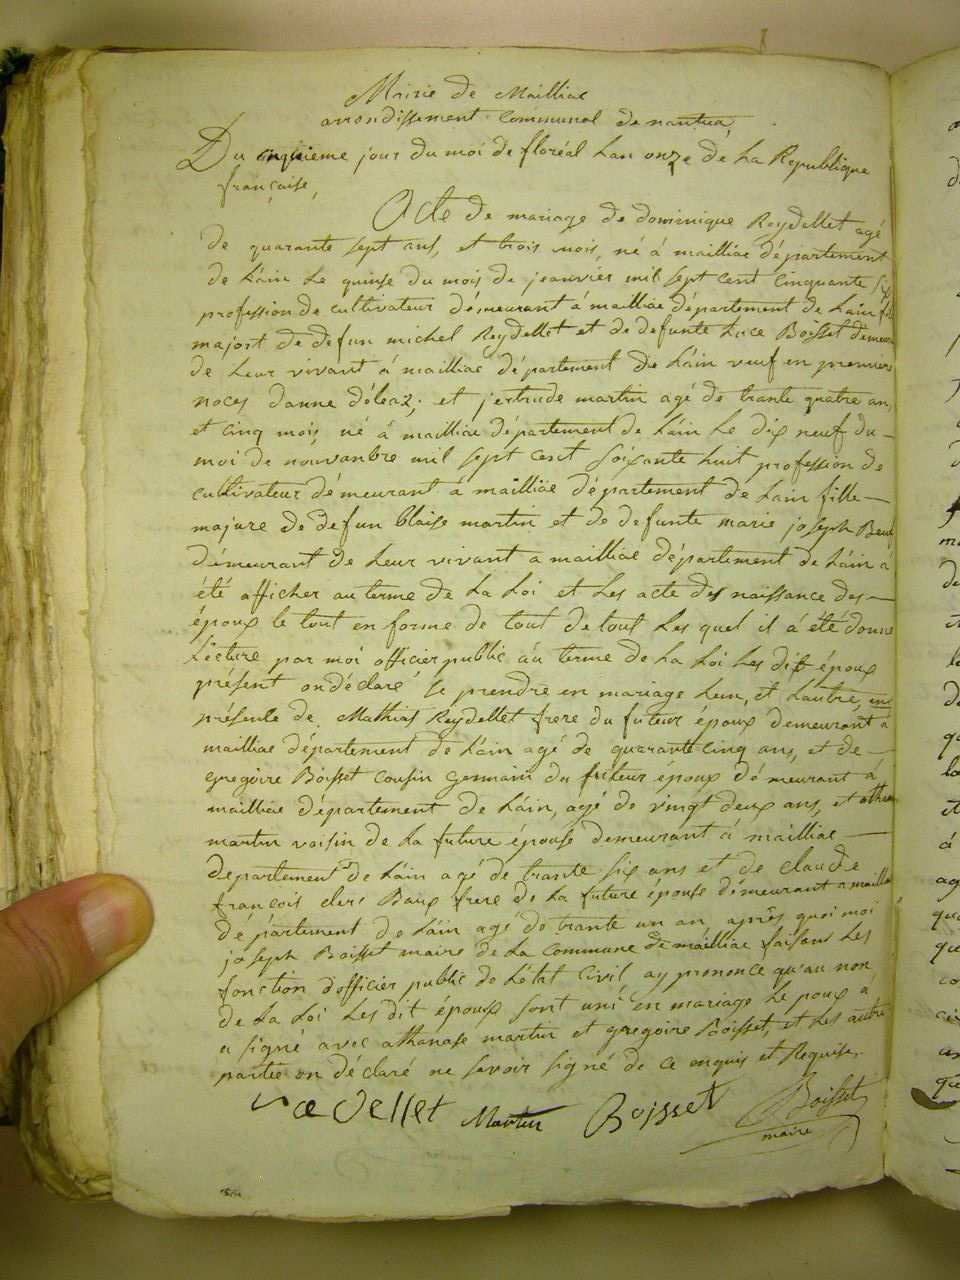 Mairie de Mailliac
arrondissement Communal de nantua,
Du cinquieme jour du moi de floréal Lan onze de La Republique
française,
Acte de mariage de dominique Reydellet agé
de quarante sept ans, et trois mois, né á mailliac département
de Láin Le quinse du mois de jeanvier mil sept cent Cinquante six
profession de cultivateur démeurant á mailliac département de Láin fils
majort de defun michel Reydellet et de defunte Luce Boisset demeurant
de Leur vivant á mailliac département de Láin veuf en premiere
noces danne déléaz; et jertrude martin agé de trante quatre an,
et cinq mois, né á mailliac département de Láin Le dix neuf du
moi de nouvanbre mil sept cent soixante huit profession de
cultivateur démeurant á mailliac département de Láin fille
majure de defun blaise martin et de defunte marie joseph
démeurant de Leur vivant a mailliac département de Láin á
été afficher au terme de La Loi et Les acte des naissance des
époux le tout en forme de tout de tout Les quel il á été donne
Lécture par moi officier public áu terme de La Loi Les dit époux
présent ondéclaré se prendre en mariage Lun, et Lautre, en
présente de Mathias Reydellet frere du futeur époux demeurant á
mailliac département de Láin agé de quarante cinq ans, et de
gregoire Boisset cousin germain du futeur époux démeurant á
mailliac département de Láin, agé de vingt deux ans, et
martin voisin de La future épouse demeurant á mailliac
département de Láin agé de trante six ans et de claude
françois clerc Baux frere de La future épouse démeurant a mailliac
département de Láin agé de trante un an, aprés quoi moi
joseph Boisset maire de La Commune de mailliac faisant Les
fonction dofficier public de Létat Civil, ay prononce quau non
de La Loi Les dit époux sont uni en mariage Le poux á
a signé avec athanase martin et gregoire Boisset, et Les autre
partie on déclaré ne savoir signé de ce enquis et Requise.
Martin Boisset Boisset
maire